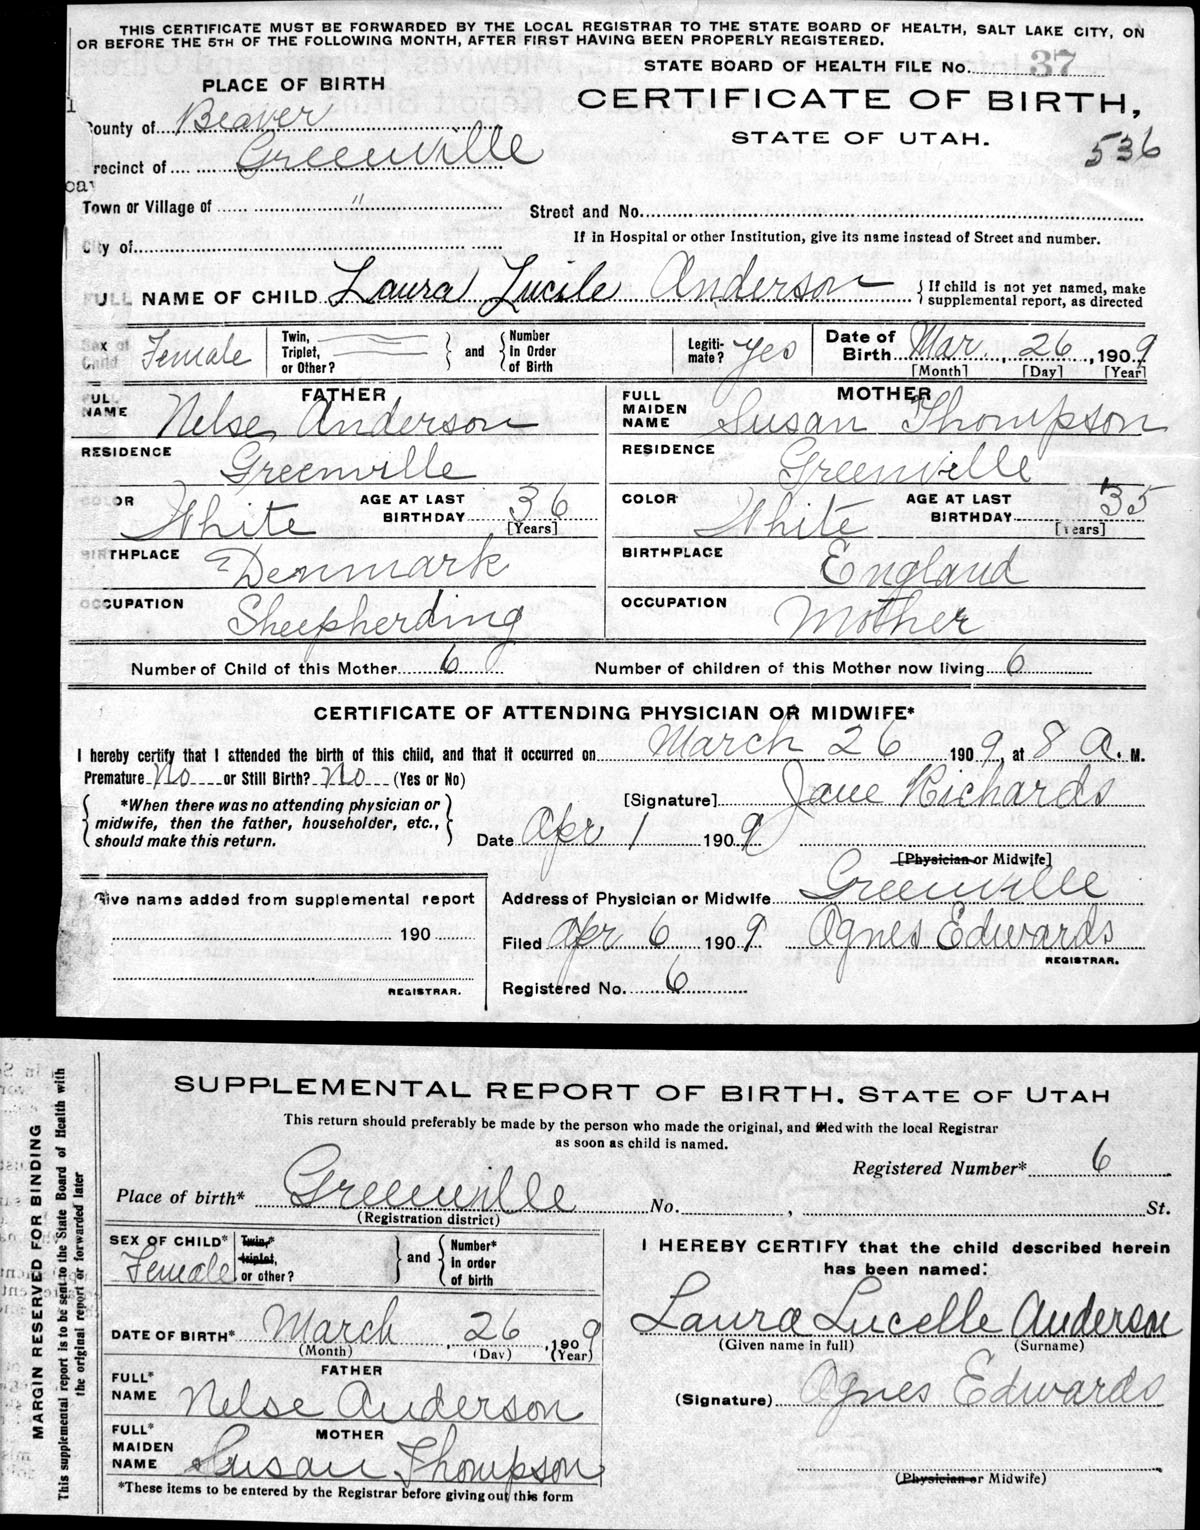 THIS CERTIFICATE MUST BE FORWARDED BY THE LOCAL REGISTRAR TO THE STATE BOARD OF HEALTH, SALT LAKE CITY, ON
OR BEFORE THE 5TH OF THE FOLLOWING MONTH, AFTER FIRST HAVING BEEN PROPERLY REGISTERED.
STATE BOARD OF HEALTH FILE No. 37
PLACE OF BIRTH
CERTIFICATE OF BIRTH,
STATE OF UTAH.
536
County of Beaver
recinct of Greenville
Town or Village of "
Street and No.
City of
If in Hospital or other Institution, give its name instead of Street and number.
FULL NAME OF CHILD Laura Lucile Anderson { If child is not yet named, make
supplemental report, as directed
Sex of Child Female
Twin, Triplet, or Other? } and { Number In Order of Birth
Legiti-mate? Yes
Date of Birth Mar. 26, 1909
[Month] [Day] [Year]
FATHER
FULL NAME Nelse Anderson
MOTHER
FULL MAIDEN NAME Susan Thompson
RESIDENCE Greenville
RESIDENCE Greenville
COLOR White AGE AT LAST BIRTHDAY 36 [Years]
COLOR White AGE AT LAST BIRTHDAY 35 [Years]
BIRTHPLACE Denmark
BIRTHPLACE England
OCCUPATION Sheepherding
OCCUPATION Mother
Number of Child of this Mother 6 Number of children of this Mother now living 6
CERTIFICATE OF ATTENDING PHYSICIAN OR MIDWIFE*
I hereby certify that I attended the birth of this child, and that it occurred on March 26 1909, at 8 A. M.
Premature No or Still Birth? No (Yes or No)
{ *When there was no attending physician or
midwife, then the father, householder, etc.,
should make this return. }
[Signature] Jane Richards
Date Apr 1 1909
[Physician or Midwife]
Give name added from supplemental report
190
REGISTRAR.
Address of Physician or Midwife Greenville
Filed Apr 6 1909 Agnes Edwards
REGISTRAR.
Registered No. 6
MARGIN RESERVED FOR BINDING
This supplemental report is to be sent to the State Board of Health with
the original report or forwarded later
SUPPLEMENTAL REPORT OF BIRTH, STATE OF UTAH
This return should preferably be made by the person who made the original, and filed with the local Registrar
as soon as child is named.
Registered Number* 6
Place of birth* Greenville No. , St.
(Registration district)
SEX OF CHILD* Female
Twin,* triplet, or other? } and { Number* In order of birth
I HEREBY CERTIFY that the child described herein
has been named:
Laura Lucelle Anderson
(Given name in full) (Surname)
DATE OF BIRTH* March 26, 1909
(Month) (Day) (Year)
FATHER
FULL* NAME Nelse Anderson
(Signature) Agnes Edwards
MOTHER
FULL* MAIDEN NAME Susan Thompson
(Physician or Midwife)
*These items to be entered by the Registrar before giving out this form